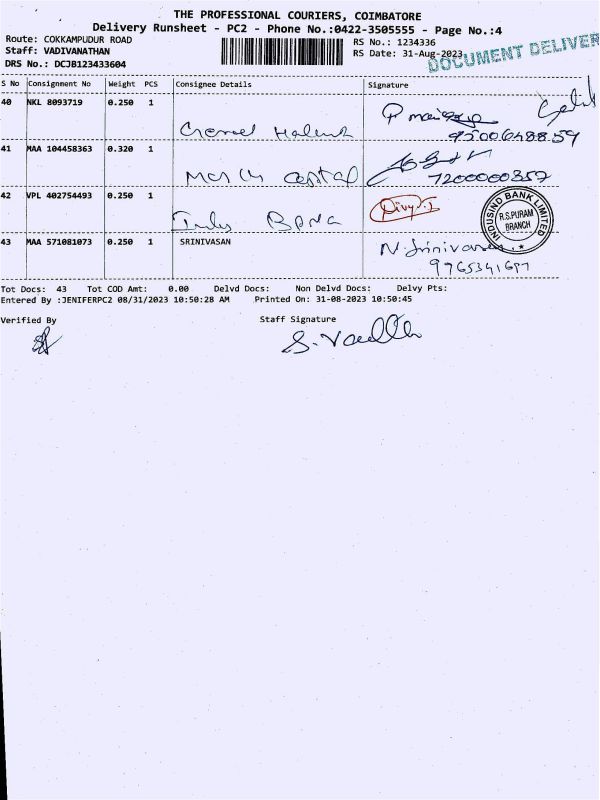 THE PROFESSIONAL COURIERS, COIMBATORE
Delivery Runsheet - PC2 - Phone No.:0422-3505555 - Page No.:4
Route: COKKAMPUDUR ROAD
RS No.: 1234336
Staff: VADIVANATHAN
RS Date: 31-Aug-2023
DOCUMENT DELIVER
DRS No.: DCJB123433604
S No Consignment No Weight PCS Consignee Details Signature
40 NKL 8093719 0.250 1
9500648859
41 MAA 104458363 0.320 1
7200000357
42 VPL 402754493 0.250 1
INDUSIND BANK LIMITED
R.S.PURAM
BRANCH
43 MAA 571081073 0.250 1 SRINIVASAN N. Srinivasan
9765341697
Tot Docs: 43 Tot COD Amt: 0.00 Delvd Docs: Non Delvd Docs: Delvy Pts:
Entered By :JENIFERPC2 08/31/2023 10:50:28 AM Printed On: 31-08-2023 10:50:45
Verified By Staff Signature